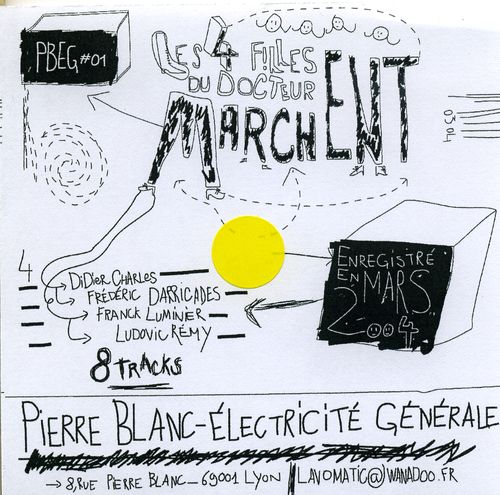 PBEG#01
LES 4 FILLES
DU DOCTEUR
MARCHENT
03.04
ENREGISTRÉ
EN MARS
2004
4
DIDIER CHARLES
FRÉDÉRIC DARRICADES
FRANCK LUMINIER
LUDOVIC RÉMY
8 TRACKS
PIERRE BLANC-ÉLECTRICITÉ GÉNÉRALE
→ 8, RUE PIERRE BLANC_69001 LYON | LAVOMATIC@WANADOO.FR